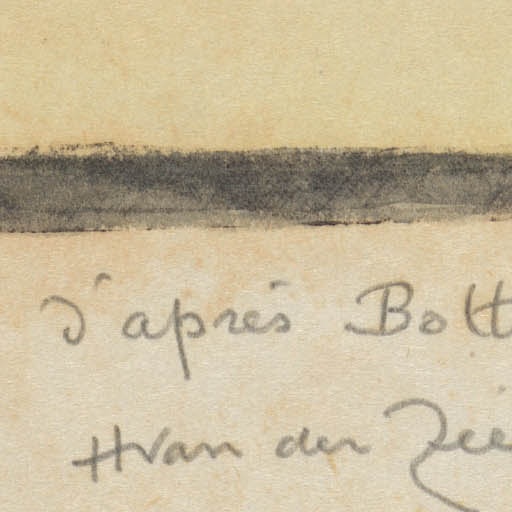 d'après Bott
H van der Zee